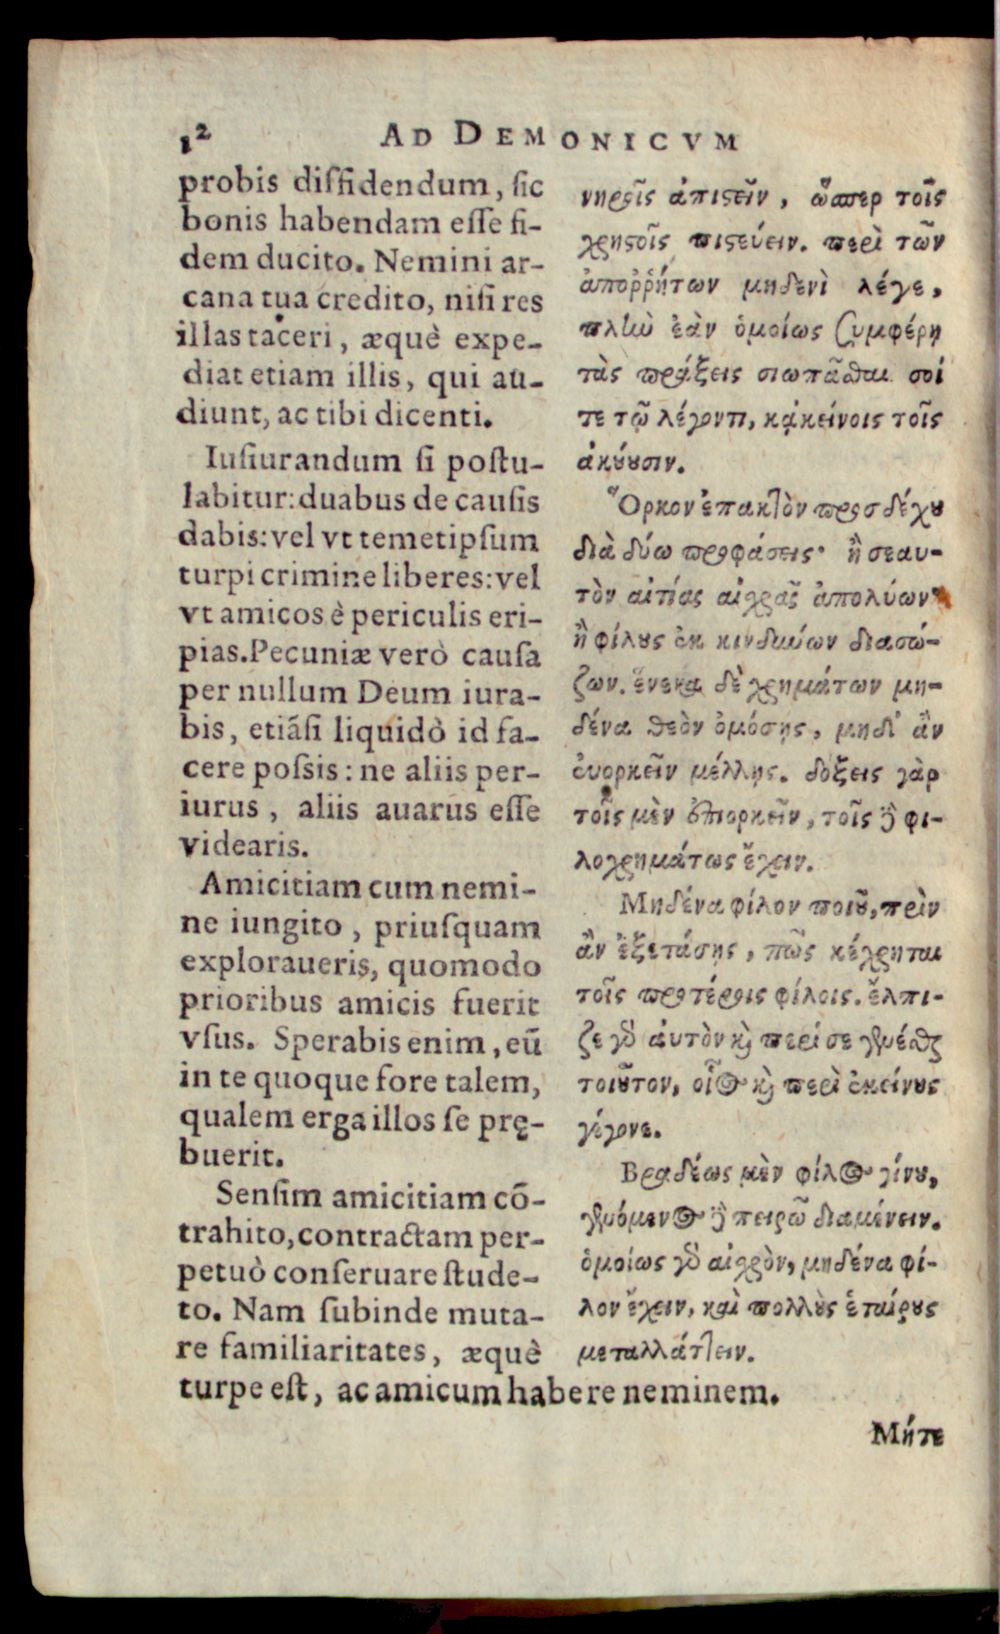 12 AD DEMONICVM
probis diffidendum, sic
bonis habendam esse fi-
dem ducito. Nemini ar-
cana tua credito, nisi res
illas taceri, æquè expe-
diat etiam illis, qui au-
diunt, ac tibi dicenti.
Iusiurandum si postu-
labitur: duabus de causis
dabis: vel vt temetipsum
turpi crimine liberes: vel
vt amicos è periculis eri-
pias. Pecuniæ verò causa
per nullum Deum iura-
bis, etiãsi liquidò id fa-
cere possis: ne aliis per-
iurus, aliis auarus esse
videaris.
Amicitiam cum nemi-
ne iungito, priusquam
exploraueris, quomodo
prioribus amicis fuerit
vsus. Sperabis enim, eũ
in te quoque fore talem,
qualem erga illos se prę-
buerit.
Sensim amicitiam cõ-
trahito, contractam per-
petuò conseruare stude-
to. Nam subinde muta-
re familiaritates, æquè
turpe est, ac amicum habere neminem.
νηροῖς ἀπιστεῖν, ὥσπερ τοῖς
χρηστοῖς πιστεύειν. περὶ τῶν
ἀποῤῥήτων μηδενὶ λέγε,
πλὴν ἐὰν ὁμοίως συμφέρῃ
τὰς πράξεις σιωπᾶσθαι σοί
τε τῷ λέγοντι, κᾀκείνοις τοῖς
ἀκούουσιν.
Ὅρκον ἐπακτὸν προσδέχου
διὰ δύω προφάσεις· ἢ σεαυ-
τὸν αἰτίας αἰχρᾶς ἀπολύων·
ἢ φίλους ἐκ κινδύνων διασώ-
ζων. ἕνεκα δὲ χρημάτων μη-
δένα θεὸν ὀμόσῃς, μηδ' ἂν
εὐορκεῖν μέλλῃς. δόξεις γὰρ
τοῖς μὲν ἐπιορκεῖν, τοῖς δὲ φι-
λοχρημάτως ἔχειν.
Μηδένα φίλον ποιοῦ, πρὶν
ἂν ἐξετάσῃς, πῶς κέχρηται
τοῖς προτέροις φίλοις. ἔλπι-
ζε γὰρ ἀυτὸν καὶ περί σε γενέσθαι
τοιοῦτον, οἷος καὶ περὶ ἐκείνους
γέγονε.
Βραδέως μὲν φίλος γίνου,
γενόμενος δὲ πειρῶ διαμένειν.
ὁμοίως γὰρ αἰχρὸν, μηδένα φί-
λον ἔχειν, καὶ πολλοὺς ἑταίρους
μεταλλάττειν.
Μήτε